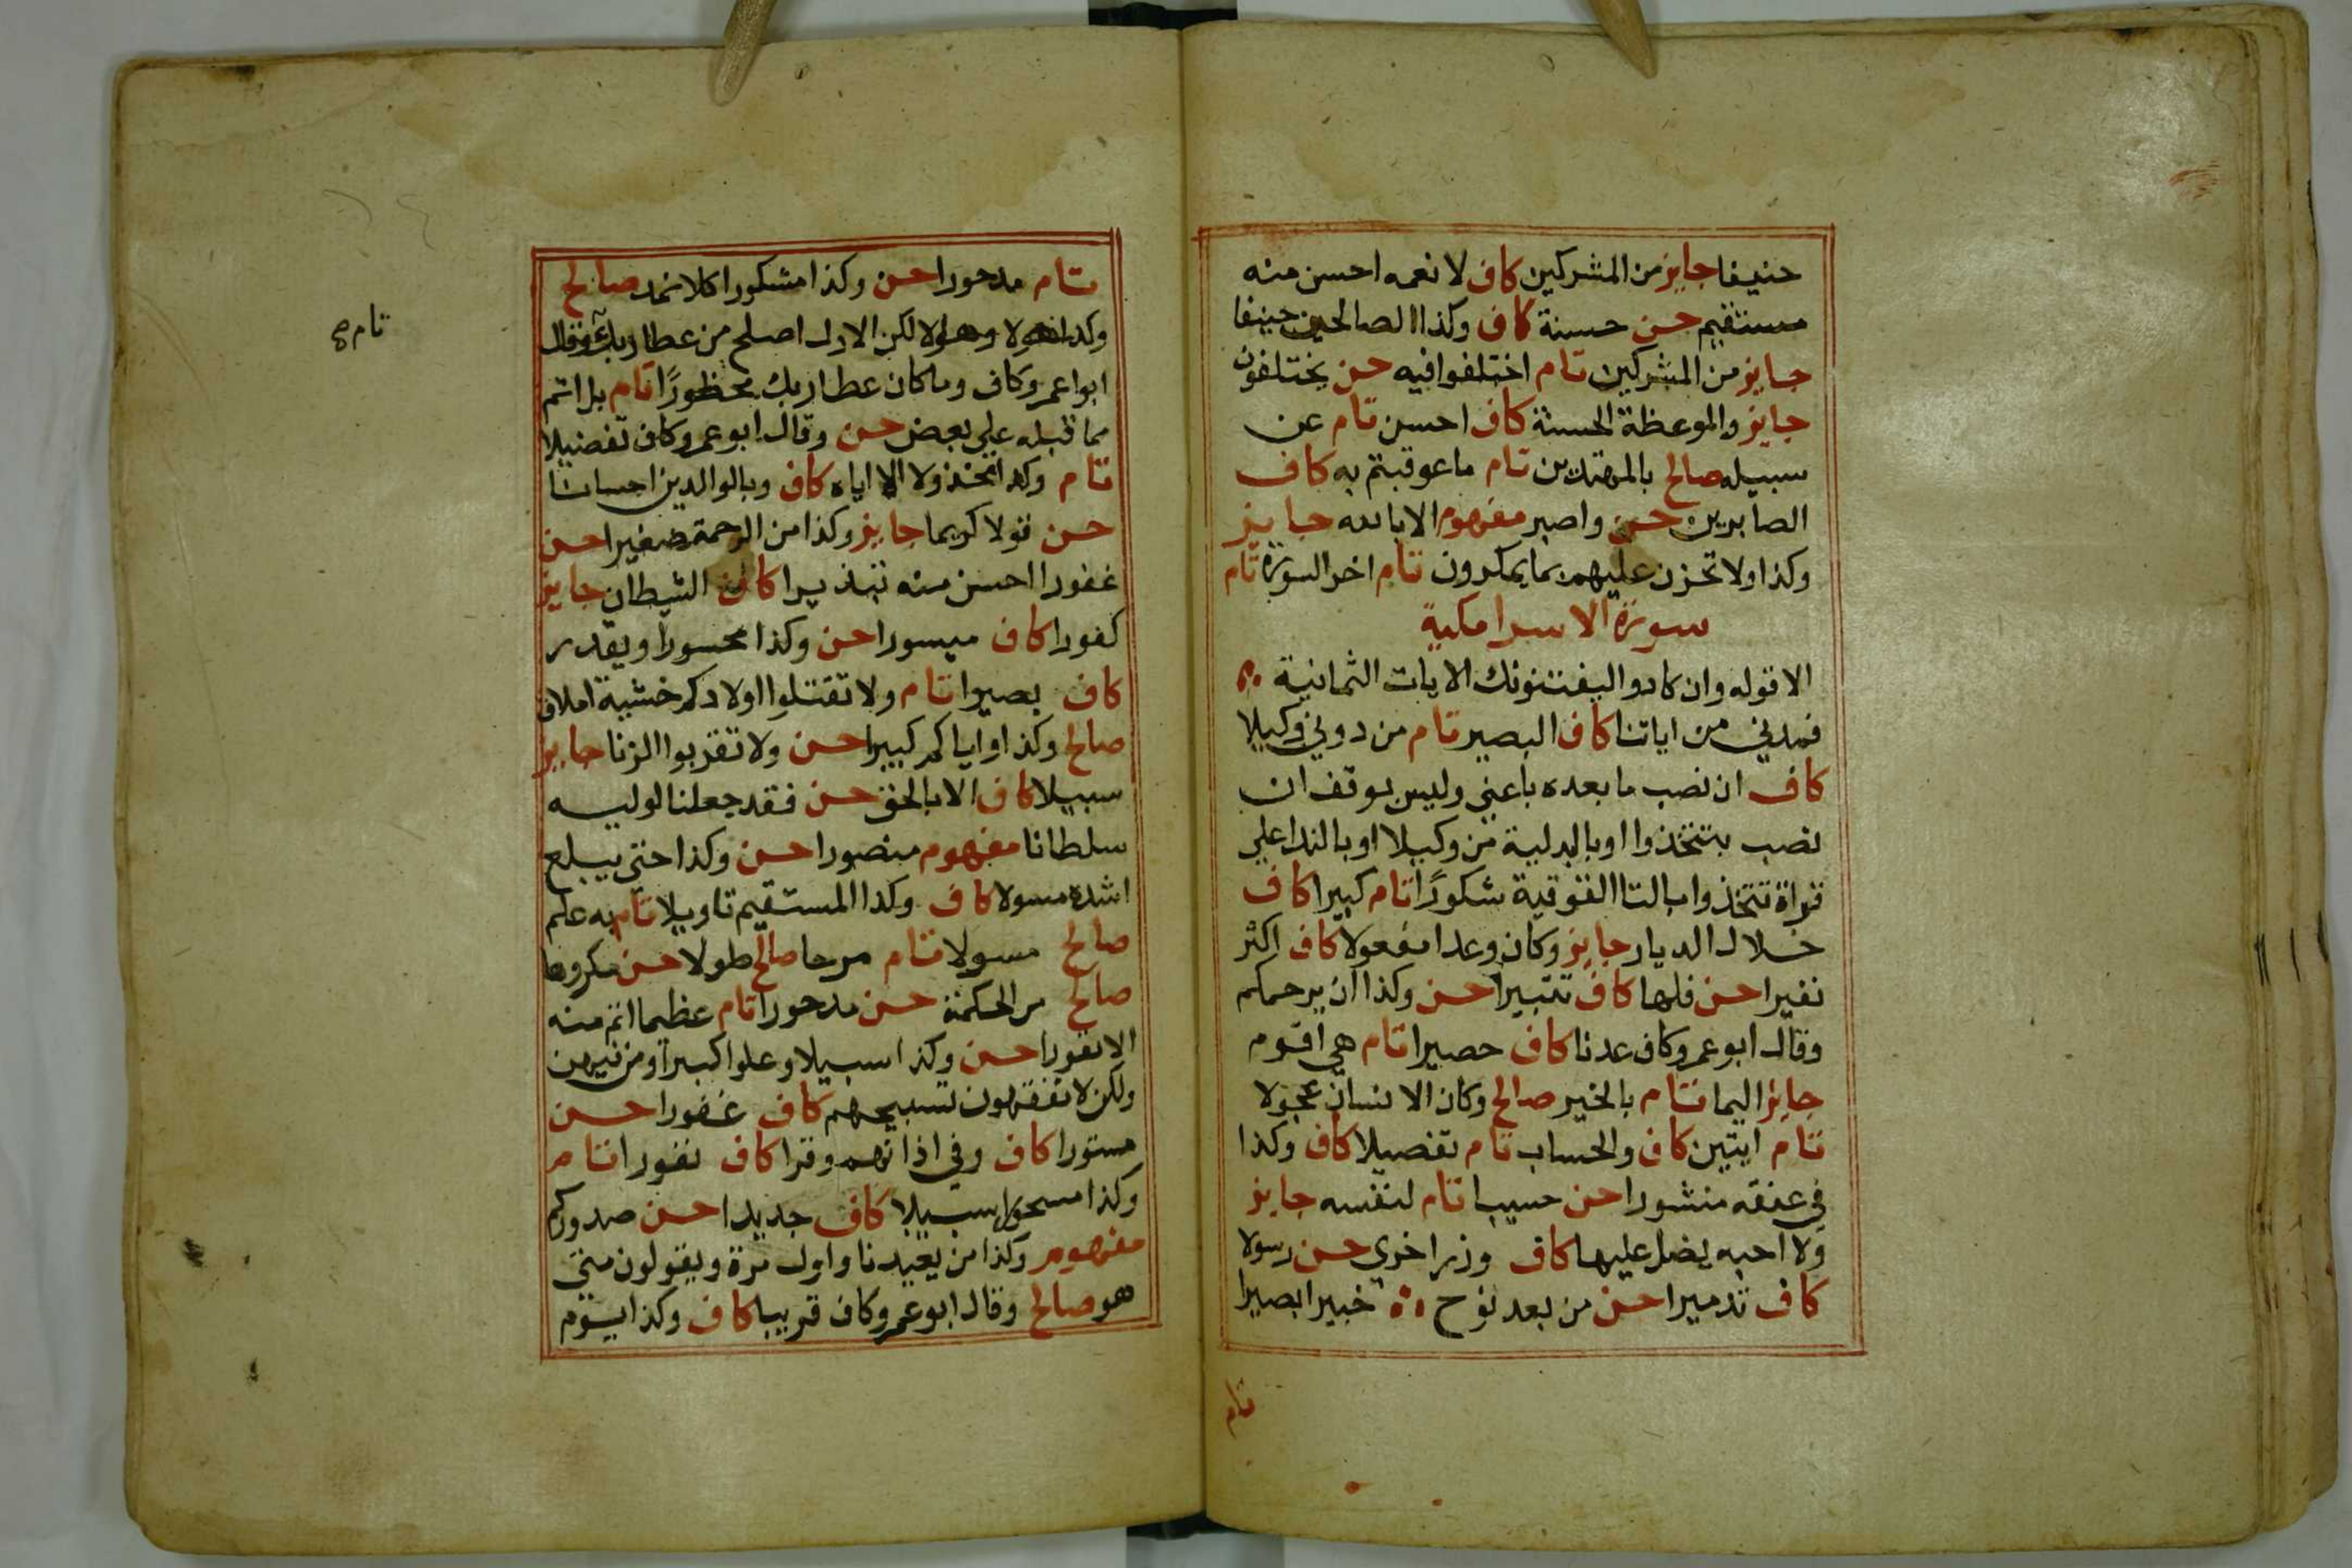 حنيفا جايز من المشركين كاف لانعمه احسن منه
مستقيم حسن حسنة كاف وكذا الصالحين حنيفا
جايز من المشركين تام اختلفوا فيه حسن يختلفون
جايز والموعظة الحسنة كاف احسن تام عن
سبيله صالح بالمهتدين تام ما عوقبتم به كاف
الصابرين حسن واصبر مفهوم الا بالله جايز
وكذا ولا تحزن عليهم مما يمكرون تام اخر السورة تام
سورة الاسرا مكية
الا قوله وان كادوا ليفتنونك الايات الثمانية
فمدني من اياتنا كاف البصير تام من دوني وكيلا
كاف ان نصب ما بعده باعني وليس بوقف ان
نصب بتتخذوا او بالبدلية من وكيلا او بالندا علي
قراة تتخذوا بالتا الفوقية شكورًا تام كبيرا كاف
خلال الديار جايز وكان وعدا مفعولا كاف اكثر
نفيرا حسن فلها كاف تتبيرا حسن وكذا ان يرحمكم
وقال ابو عمرو كاف عدنا كاف حصيرا تام هي اقوم
جايز اليما تام بالخير صالح وكان الانسان عجولا
تام ايتين كاف والحساب تام تفصيلا كاف وكذا
في عنقه منشورا حسن حسيبا تام لنفسه جايز
ولا احبه يضل عليها كاف وزر اخري حسن رسولا
كاف تدميرا حسن من بعد نوح خبيرا بصيرا
تام
تام مدحورا حسن وكذا مشكورا كلا نمد صالح
وكذا هولا وهولا لكن الاول اصلح من عطا ربك وقال
ابوا عمرو كاف وما كان عطا ربك محظورًا تام بل اتم
مما قبله علي بعض حسن وقال ابو عمرو كاف تفضيلا
تام وكذا مخذولا الا اياه كاف وبالوالدين احسانا
حسن قولا كريما جايز وكذا من الرحمة صغيرا حسن
غفورا احسن منه تبذيرا كاف الشيطان جايز
كفورا كاف ميسورا حسن وكذا محسورا ويقدر
كاف بصيرا تام ولا تقتلوا اولادكم خشية املاق
صالح وكذا واياكم كبيرا حسن ولا تقربوا الزنا جايز
سبيلا كاف الا بالحق حسن فقد جعلنا لوليه
سلطانا مفهوم منصورا حسن وكذا حتي يبلغ
اشده مسولا كاف وكذا المستقيم تاويلا تام به علم
صالح مسولا تام مرحا صالح طولا حسن مكروها
صالح من الحكمة حسن مدحورا تام عظيما اتم منه
الا نفورا حسن وكذا سبيلا وعلوا كبيرا ومن فيهن
ولكن لا تفقهون تسبيحهم كاف غفورا حسن
مستورا كاف وفي اذانهم وقرا كاف نفورا تام
وكذا مسحورا سبيلا كاف جديدا حسن صدوركم
مفهوم وكذا من يعيدنا واول مرة ويقولون متي
هو صالح وقال ابو عمرو كاف قريبا كاف وكذا يوم
تام صح